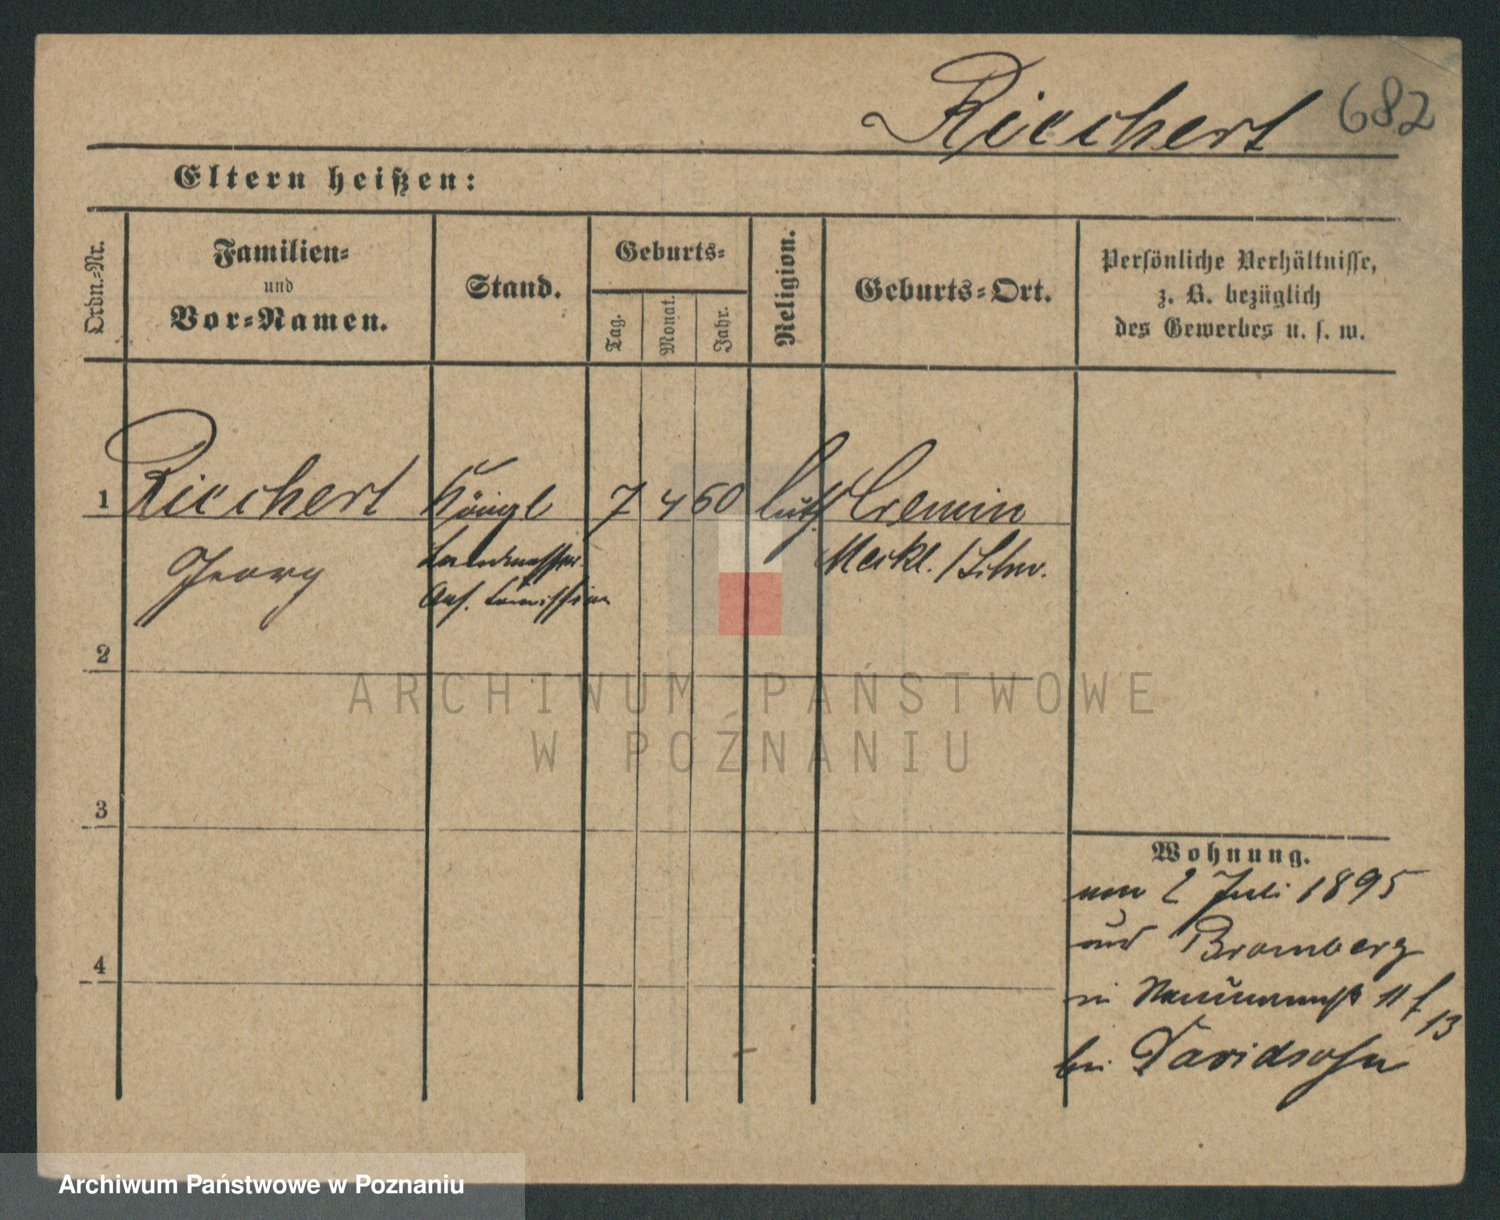 Riechert 682
Eltern heißen:
Ordn.=Nr.
Familien=
und
Vor=Namen.
Stand.
Geburts=
Tag.
Monat.
Jahr.
Religion.
Geburts=Ort.
Persönliche Verhältnisse,
z. B. bezüglich
des Gewerbes u. s. w.
1 Riechert Königl 7 4 60 luth Cremin
Georg Landmesser Meckl. /Schw.
Ans. Comission
2
3
4
Wohnung.
vom 2 Juli 1895
aus Bromberg
in 11
13
bei Davidsohn
ARCHIWUM PAŃSTWOWE
W POZNANIU
Archiwum Państwowe w Poznaniu